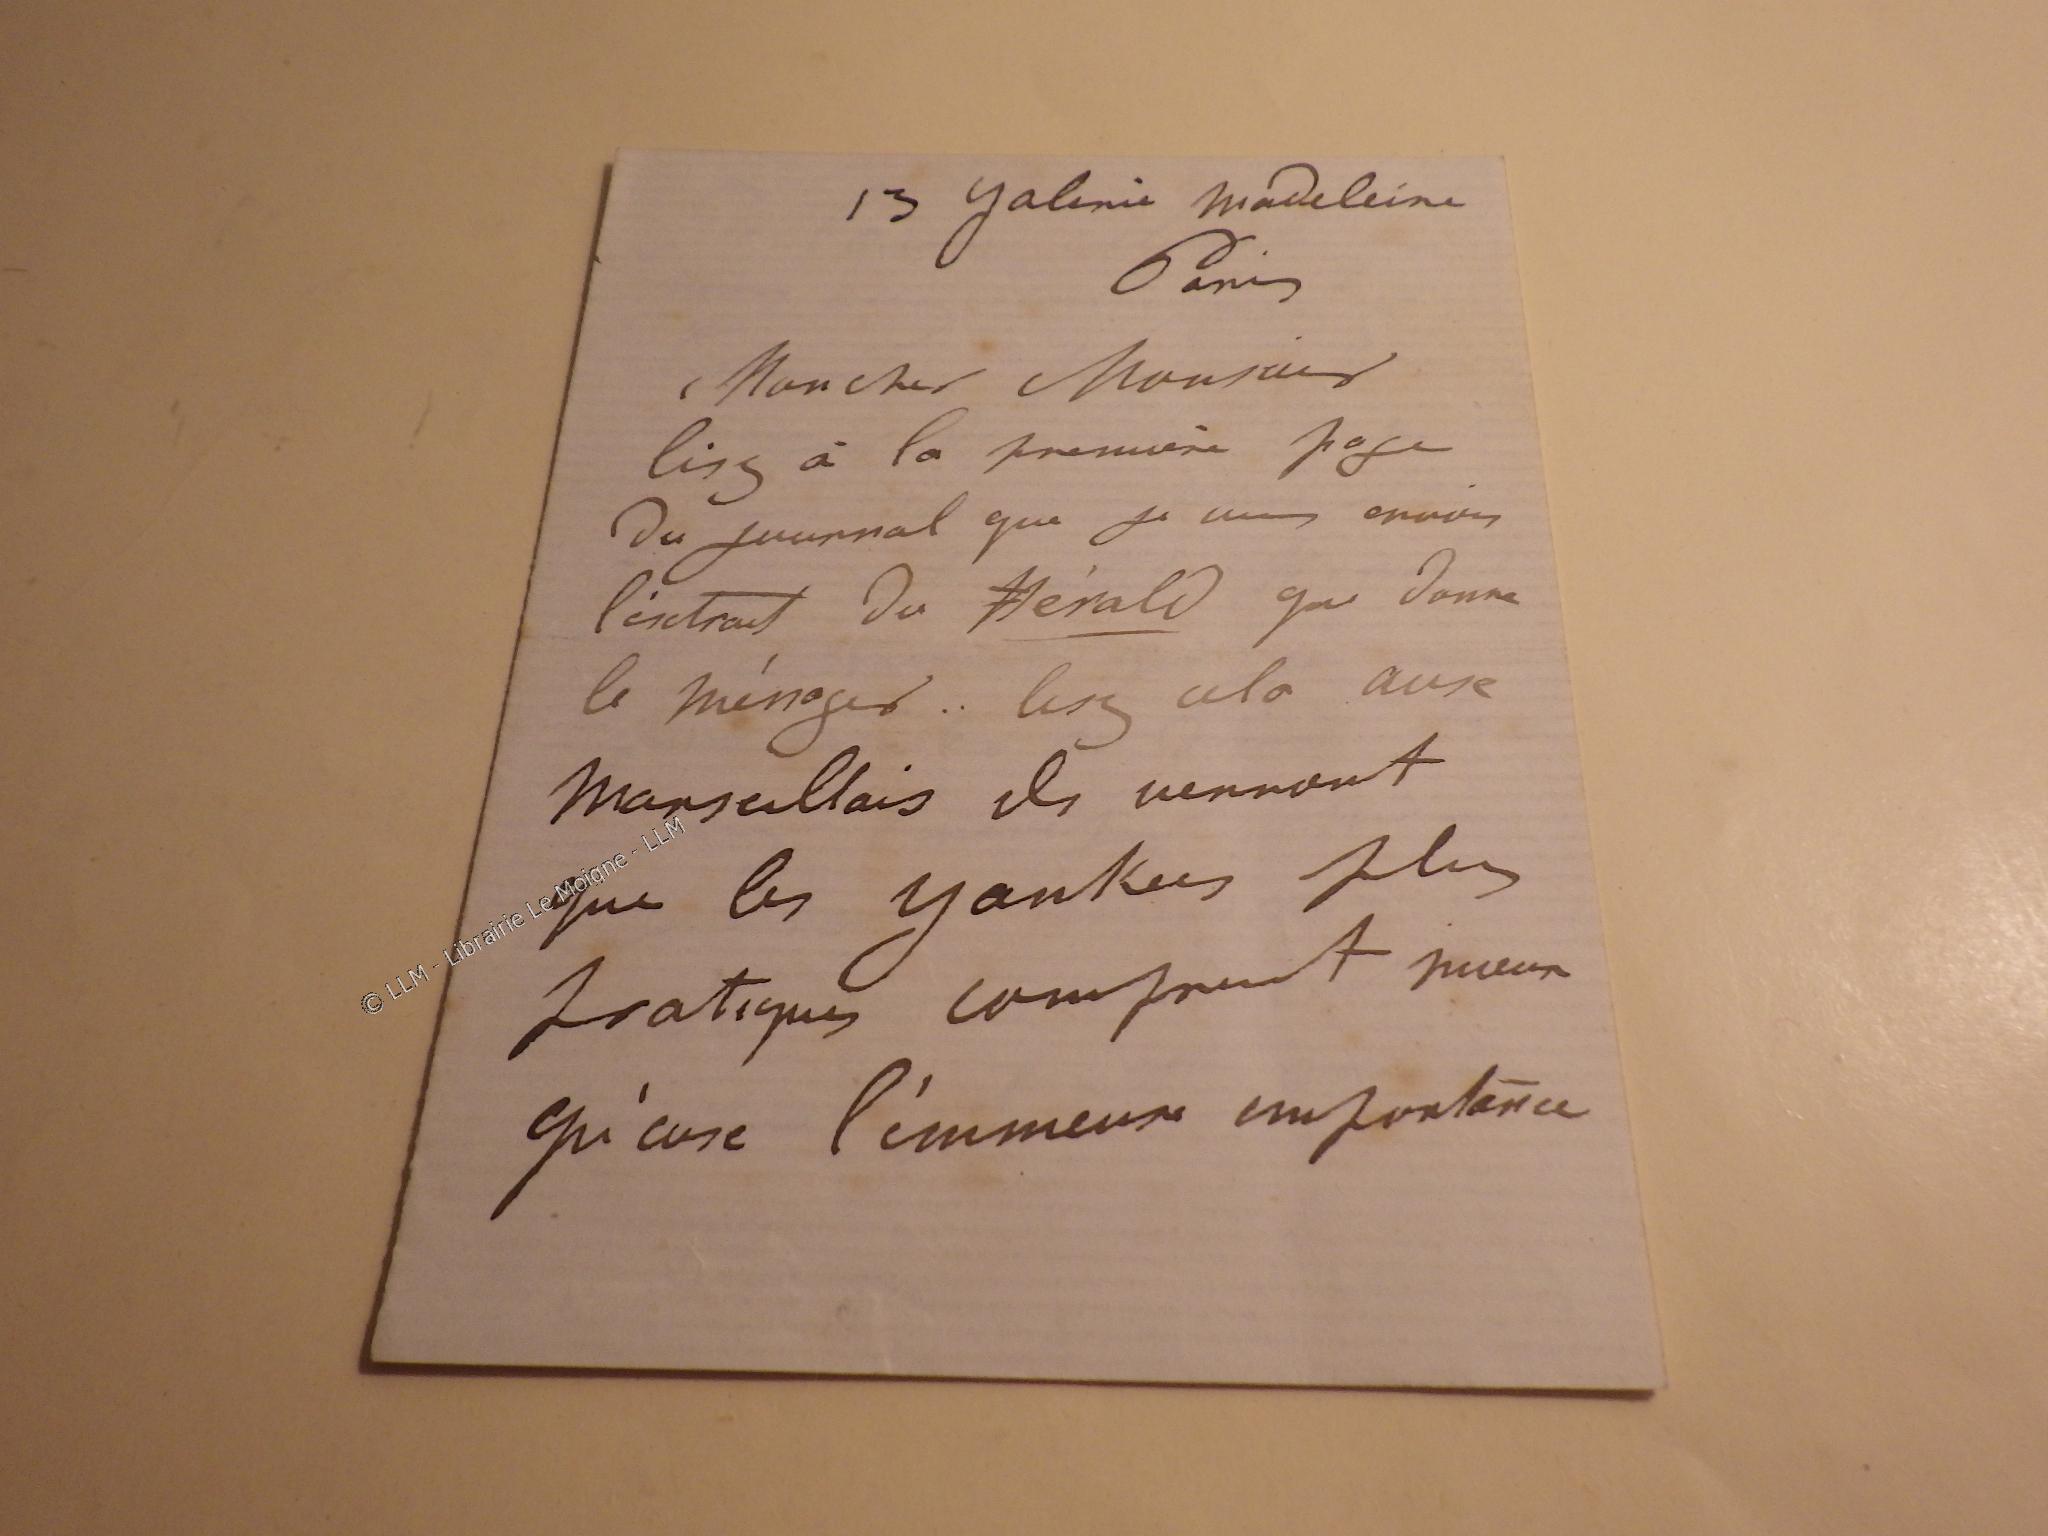 13 galerie Madeleine
Paris
Mon cher Monsieur
lisez à la première page
du journal que je vous envois
l'extrait du Hérald que donne
le ménager.. lisez cela aux
Marseillais ils verront
que les yankees plus
pratiques comprent mieux
qu'eux l'immense importance
© LLM - Librairie Le Moigne - LLM